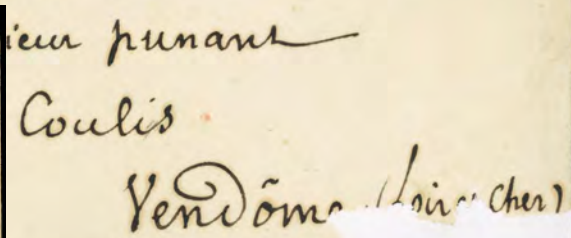 ieur punant
Coulis
Vendôme (Loir & Cher)